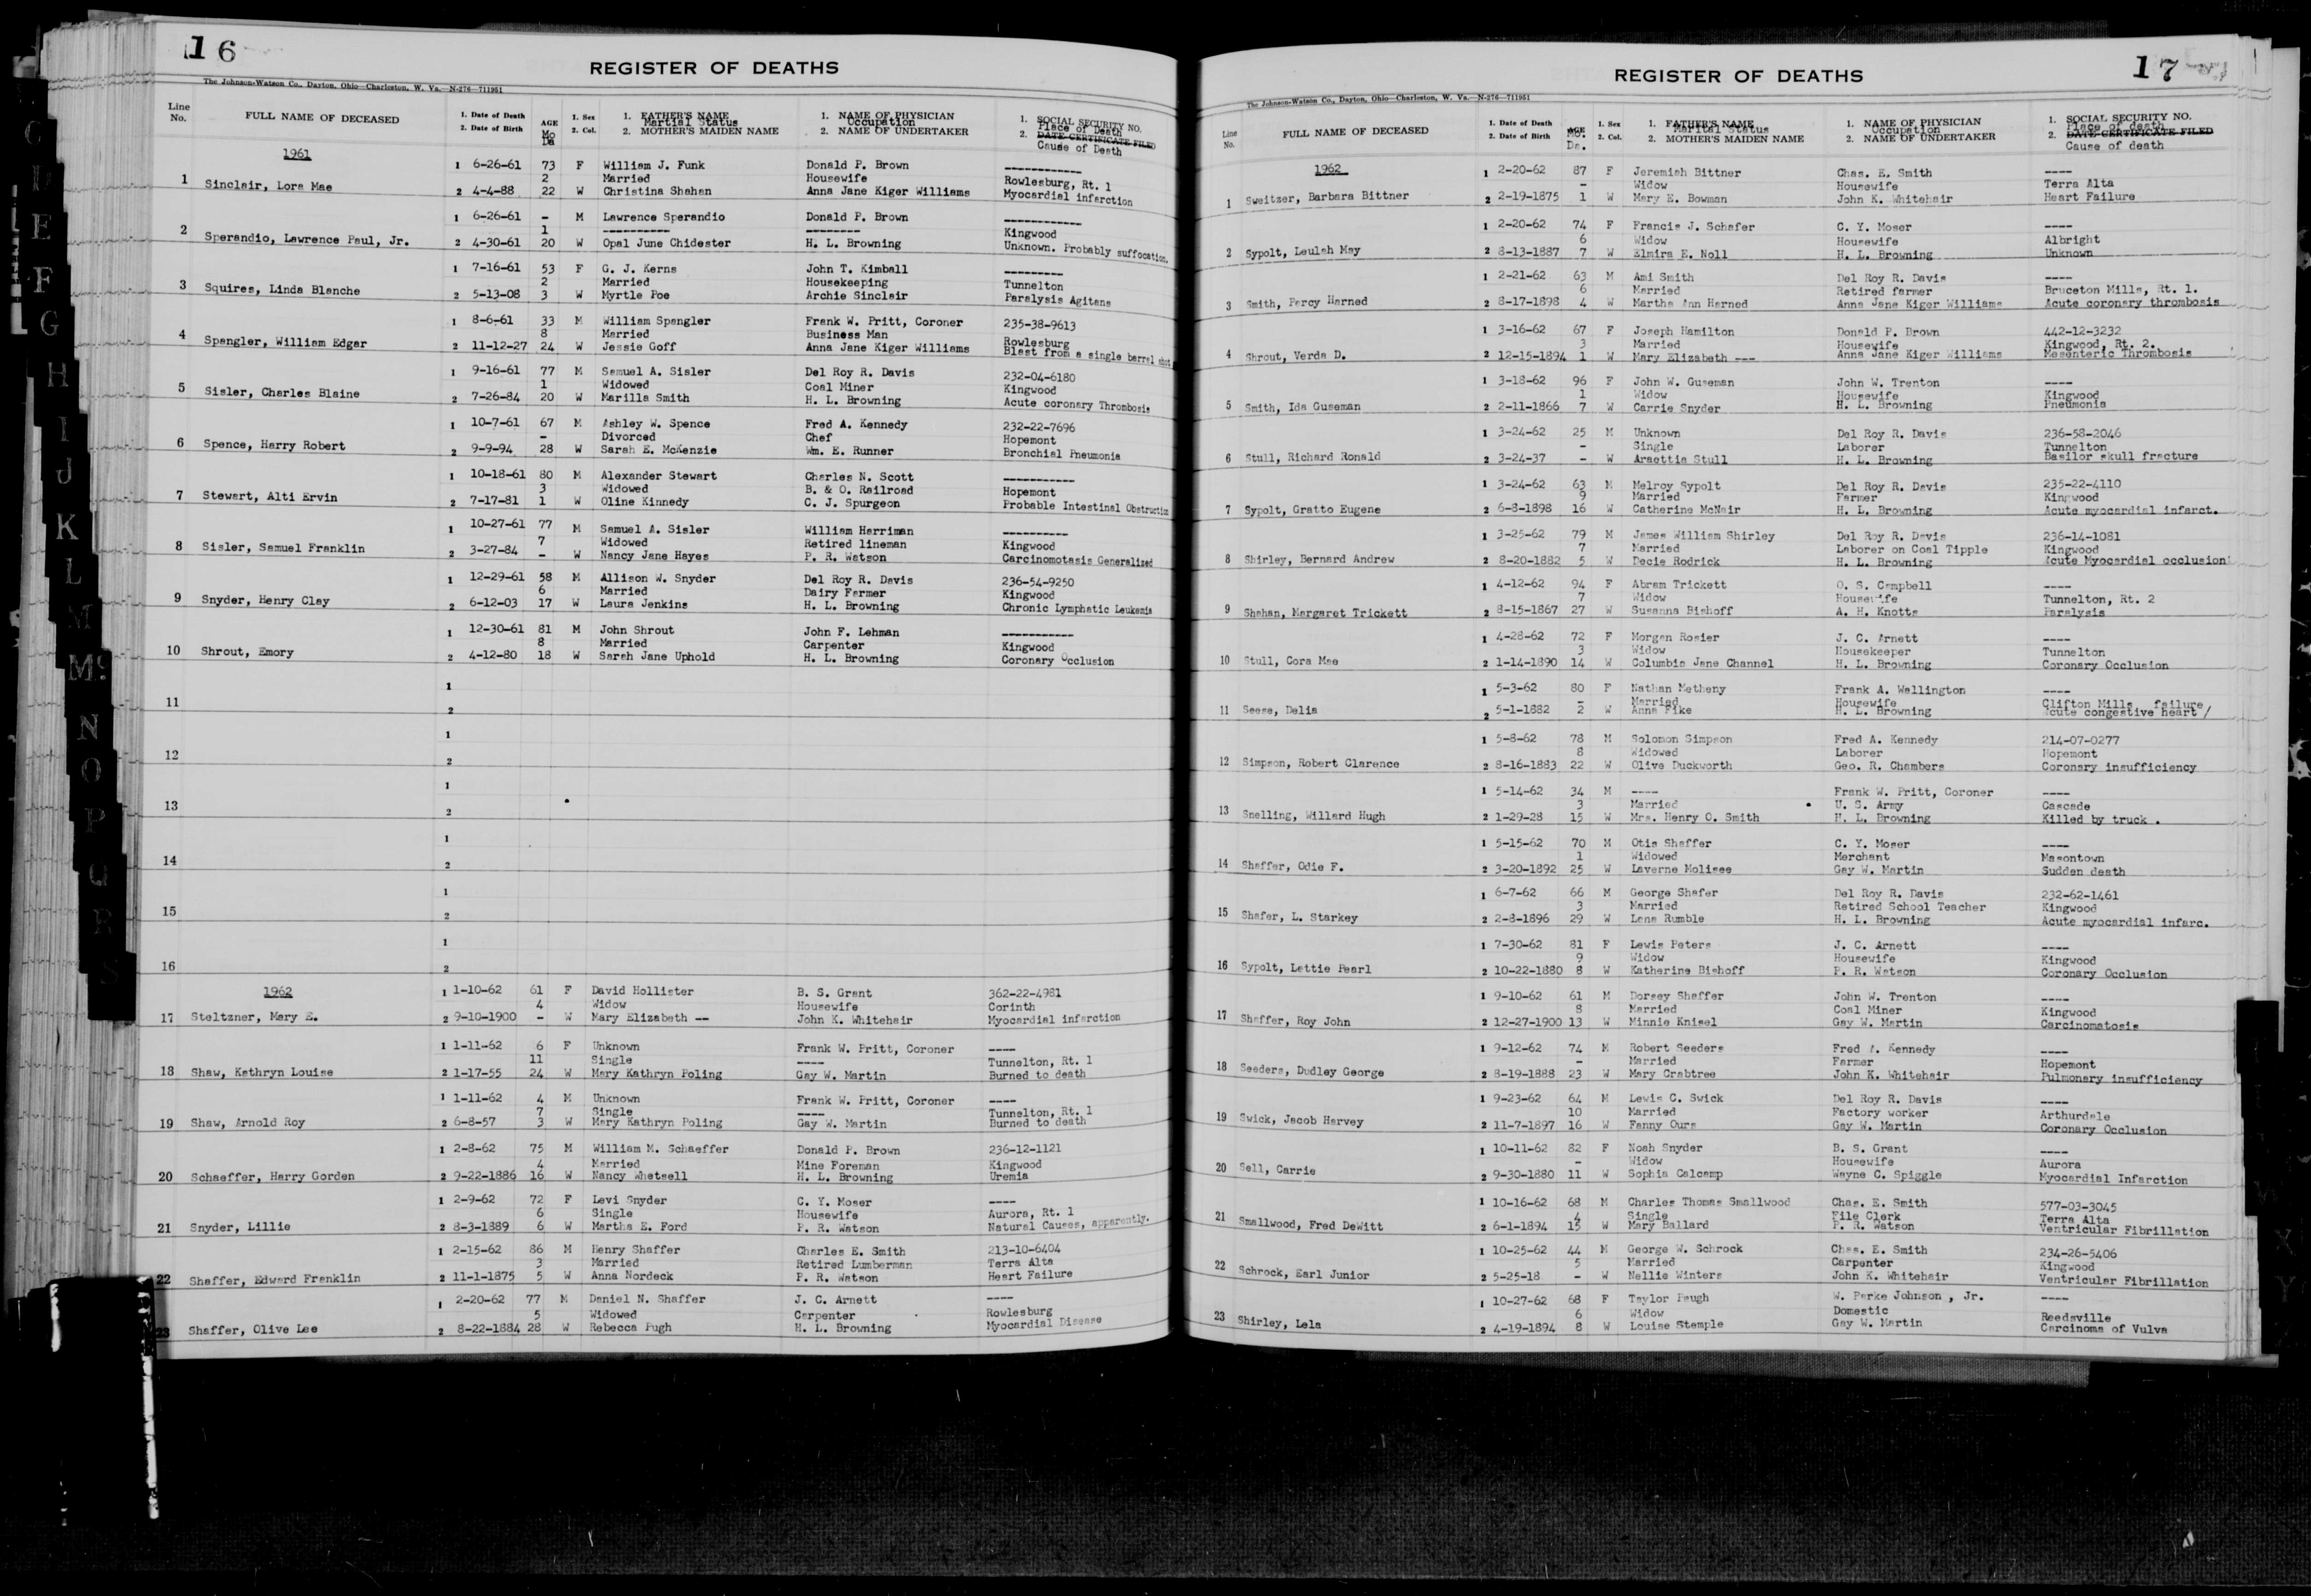 16
REGISTER OF DEATHS
The Johnson-Watson Co., Dayton, Ohio—Charleston, W. Va.—N-276—711951
Line No. FULL NAME OF DECEASED 1. Date of Death 2. Date of Birth AGE Mo Da 1. Sex 2. Col. 1. FATHER'S NAME Martial Status 2. MOTHER'S MAIDEN NAME 1. NAME OF PHYSICIAN Occupation 2. NAME OF UNDERTAKER 1. SOCIAL SECURITY NO. Place of Death 2. DATE CERTIFICATE FILED Cause of Death
1961
1 6-26-61 73 F William J. Funk Donald P. Brown -----------
2 Married Housewife Rowlesburg, Rt. 1
1 Sinclair, Lora Mae 2 4-4-88 22 W Christina Shahan Anna Jane Kiger Williams Myocardial infarction
1 6-26-61 - M Lawrence Sperandio Donald P. Brown -----------
1 ---------- -------- Kingwood
2 Sperandio, Lawrence Paul, Jr. 2 4-30-61 20 W Opal June Chidester H. L. Browning Unknown. Probably suffocation.
1 7-16-61 53 F G. J. Kerns John T. Kimball ---------
2 Married Housekeeping Tunnelton
3 Squires, Linda Blanche 2 5-13-08 3 W Myrtle Poe Archie Sinclair Paralysis Agitans
1 8-6-61 33 M William Spangler Frank W. Pritt, Coroner 235-38-9613
8 Married Business Man Rowlesburg
4 Spangler, William Edgar 2 11-12-27 24 W Jessie Goff Anna Jane Kiger Williams Blast from a single barrel shot
1 9-16-61 77 M Samuel A. Sisler Del Roy R. Davis 232-04-6180
1 Widowed Coal Miner Kingwood
5 Sisler, Charles Blaine 2 7-26-84 20 W Marilla Smith H. L. Browning Acute coronary Thrombosis
1 10-7-61 67 M Ashley W. Spence Fred A. Kennedy 232-22-7696
- Divorced Chef Hopemont
6 Spence, Harry Robert 2 9-9-94 28 W Sarah E. McKenzie Wm. E. Runner Bronchial Pneumonia
1 10-18-61 80 M Alexander Stewart Charles N. Scott -----------
3 Widowed B. & O. Railroad Hopemont
7 Stewart, Alti Ervin 2 7-17-81 1 W Oline Kinnedy C. J. Spurgeon Probable Intestinal Obstruction
1 10-27-61 77 M Samuel A. Sisler William Harriman ----------
7 Widowed Retired lineman Kingwood
8 Sisler, Samuel Franklin 2 3-27-84 - W Nancy Jane Hayes P. R. Watson Carcinomotasis Generalized
1 12-29-61 58 M Allison W. Snyder Del Roy R. Davis 236-54-9250
6 Married Dairy Farmer Kingwood
9 Snyder, Henry Clay 2 6-12-03 17 W Laura Jenkins H. L. Browning Chronic Lymphatic Leukemia
1 12-30-61 81 M John Shrout John F. Lehman -----------
8 Married Carpenter Kingwood
10 Shrout, Emory 2 4-12-80 18 W Sarah Jane Uphold H. L. Browning Coronary Occlusion
1
11 2
1
12 2
1
13 2
1
14 2
1
15 2
1
16 2
1962 1 1-10-62 61 F David Hollister B. S. Grant 362-22-4981
4 Widow Housewife Corinth
17 Steltzner, Mary E. 2 9-10-1900 - W Mary Elizabeth -- John K. Whitehair Myocardial infarction
1 1-11-62 6 F Unknown Frank W. Pritt, Coroner ----
11 Single ---- Tunnelton, Rt. 1
18 Shaw, Kathryn Louise 2 1-17-55 24 W Mary Kathryn Poling Gay W. Martin Burned to death
1 1-11-62 4 M Unknown Frank W. Pritt, Coroner ----
7 Single ---- Tunnelton, Rt. 1
19 Shaw, Arnold Roy 2 6-8-57 3 W Mary Kathryn Poling Gay W. Martin Burned to death
1 2-8-62 75 M William M. Schaeffer Donald P. Brown 236-12-1121
4 Married Mine Foreman Kingwood
20 Schaeffer, Harry Gorden 2 9-22-1886 16 W Nancy Whetsell H. L. Browning Uremia
1 2-9-62 72 F Levi Snyder C. Y. Moser ----
6 Single Housewife Aurora, Rt. 1
21 Snyder, Lillie 2 8-3-1889 6 W Martha E. Ford P. R. Watson Natural Causes, apparently.
1 2-15-62 86 M Henry Shaffer Charles E. Smith 213-10-6404
3 Married Retired Lumberman Terra Alta
22 Shaffer, Edward Franklin 2 11-1-1875 5 W Anna Nordeck P. R. Watson Heart Failure
1 2-20-62 77 M Daniel N. Shaffer J. C. Arnett ----
5 Widowed Carpenter Rowlesburg
23 Shaffer, Olive Lee 2 8-22-1884 28 W Rebecca Pugh H. L. Browning Myocardial Disease
17
REGISTER OF DEATHS
The Johnson-Watson Co., Dayton, Ohio—Charleston, W. Va.—N-276—711951
Line No. FULL NAME OF DECEASED 1. Date of Death 2. Date of Birth AGE Mo. Da. 1. Sex 2. Col. 1. FATHER'S NAME Marital Status 2. MOTHER'S MAIDEN NAME 1. NAME OF PHYSICIAN Occupation 2. NAME OF UNDERTAKER 1. SOCIAL SECURITY NO. Place of death 2. DATE CERTIFICATE FILED Cause of death
1962 1 2-20-62 87 F Jeremiah Bittner Chas. E. Smith ----
- Widow Housewife Terra Alta
1 Sweitzer, Barbara Bittner 2 2-19-1875 1 W Mary E. Bowman John K. Whitehair Heart Failure
1 2-20-62 74 F Francis J. Schafer C. Y. Moser ----
6 Widow Housewife Albright
2 Sypolt, Leulah May 2 8-13-1887 7 W Elmira E. Noll H. L. Browning Unknown
1 2-21-62 63 M Ami Smith Del Roy R. Davis ----
6 Married Retired farmer Bruceton Mills, Rt. 1.
3 Smith, Percy Harned 2 8-17-1898 4 W Martha Ann Harned Anna Jane Kiger Williams Acute coronary thrombosis
1 3-16-62 67 F Joseph Hamilton Donald P. Brown 442-12-3232
3 Married Housewife Kingwood, Rt. 2.
4 Shrout, Verda D. 2 12-15-1894 1 W Mary Elizabeth --- Anna Jane Kiger Williams Mesenteric Thrombosis
1 3-18-62 96 F John W. Guseman John W. Trenton ----
1 Widow Housewife Kingwood
5 Smith, Ida Guseman 2 2-11-1866 7 W Carrie Snyder H. L. Browning Pneumonia
1 3-24-62 25 M Unknown Del Roy R. Davis 236-58-2046
- Single Laborer Tunnelton
6 Stull, Richard Ronald 2 3-24-37 - W Araettia Stull H. L. Browning Basilor skull fracture
1 3-24-62 63 M Melroy Sypolt Del Roy R. Davis 235-22-4110
9 Married Farmer Kingwood
7 Sypolt, Gratto Eugene 2 6-8-1898 16 W Catherine McNair H. L. Browning Acute myocardial infarct.
1 3-25-62 79 M James William Shirley Del Roy R. Davis 236-14-1081
7 Married Laborer on Coal Tipple Kingwood
8 Shirley, Bernard Andrew 2 8-20-1882 5 W Decie Rodrick H. L. Browning Acute Myocardial occlusion
1 4-12-62 94 F Abram Trickett O. S. Campbell ----
7 Widow Housewife Tunnelton, Rt. 2
9 Shahan, Margaret Trickett 2 8-15-1867 27 W Susanna Bishoff A. H. Knotts Paralysis
1 4-28-62 72 F Morgan Rosier J. C. Arnett ----
3 Widow Housekeeper Tunnelton
10 Stull, Cora Mae 2 1-14-1890 14 W Columbia Jane Channel H. L. Browning Coronary Occlusion
1 5-3-62 80 F Nathan Metheny Frank A. Wellington ----
- Married Housewife Clifton Mills failure
11 Seese, Delia 2 5-1-1882 2 W Anna Fike H. L. Browning Acute congestive heart /
1 5-8-62 78 M Solomon Simpson Fred A. Kennedy 214-07-0277
8 Widowed Laborer Hopemont
12 Simpson, Robert Clarence 2 8-16-1883 22 W Olive Duckworth Geo. R. Chambers Coronary insufficiency
1 5-14-62 34 M ---- Frank W. Pritt, Coroner ----
3 Married U. S. Army Cascade
13 Snelling, Willard Hugh 2 1-29-28 15 W Mrs. Henry O. Smith H. L. Browning Killed by truck .
1 5-15-62 70 M Otis Shaffer C. Y. Moser ----
1 Widowed Merchant Masontown
14 Shaffer, Odie F. 2 3-20-1892 25 W Laverne Molisee Gay W. Martin Sudden death
1 6-7-62 66 M George Shafer Del Roy R. Davis 232-62-1461
3 Married Retired School Teacher Kingwood
15 Shafer, L. Starkey 2 2-8-1896 29 W Lena Rumble H. L. Browning Acute myocardial infarc.
1 7-30-62 81 F Lewis Peters J. C. Arnett ----
9 Widow Housewife Kingwood
16 Sypolt, Lettie Pearl 2 10-22-1880 8 W Katherine Bishoff P. R. Watson Coronary Occlusion
1 9-10-62 61 M Dorsey Shaffer John W. Trenton ----
8 Married Coal Miner Kingwood
17 Shaffer, Roy John 2 12-27-1900 13 W Minnie Knisel Gay W. Martin Carcinomatosis
1 9-12-62 74 M Robert Seeders Fred A. Kennedy ----
- Married Farmer Hopemont
18 Seeders, Dudley George 2 8-19-1888 23 W Mary Crabtree John K. Whitehair Pulmonary insufficiency
1 9-23-62 64 M Lewis C. Swick Del Roy R. Davis ----
10 Married Factory worker Arthurdale
19 Swick, Jacob Harvey 2 11-7-1897 16 W Fanny Ours Gay W. Martin Coronary Occlusion
1 10-11-62 82 F Noah Snyder B. S. Grant ----
- Widow Housewife Aurora
20 Sell, Carrie 2 9-30-1880 11 W Sophia Calcamp Wayne C. Spiggle Myocardial Infarction
1 10-16-62 68 M Charles Thomas Smallwood Chas. E. Smith 577-03-3045
4 Single File Clerk Terra Alta
21 Smallwood, Fred DeWitt 2 6-1-1894 15 W Mary Ballard P. R. Watson Ventricular Fibrillation
1 10-25-62 44 M George W. Schrock Chas. E. Smith 234-26-5406
5 Married Carpenter Kingwood
22 Schrock, Earl Junior 2 5-25-18 - W Nellie Winters John K. Whitehair Ventricular Fibrillation
1 10-27-62 68 F Taylor Paugh W. Parke Johnson , Jr. ----
6 Widow Domestic Reedsville
23 Shirley, Lela 2 4-19-1894 8 W Louise Stemple Gay W. Martin Carcinoma of Vulva